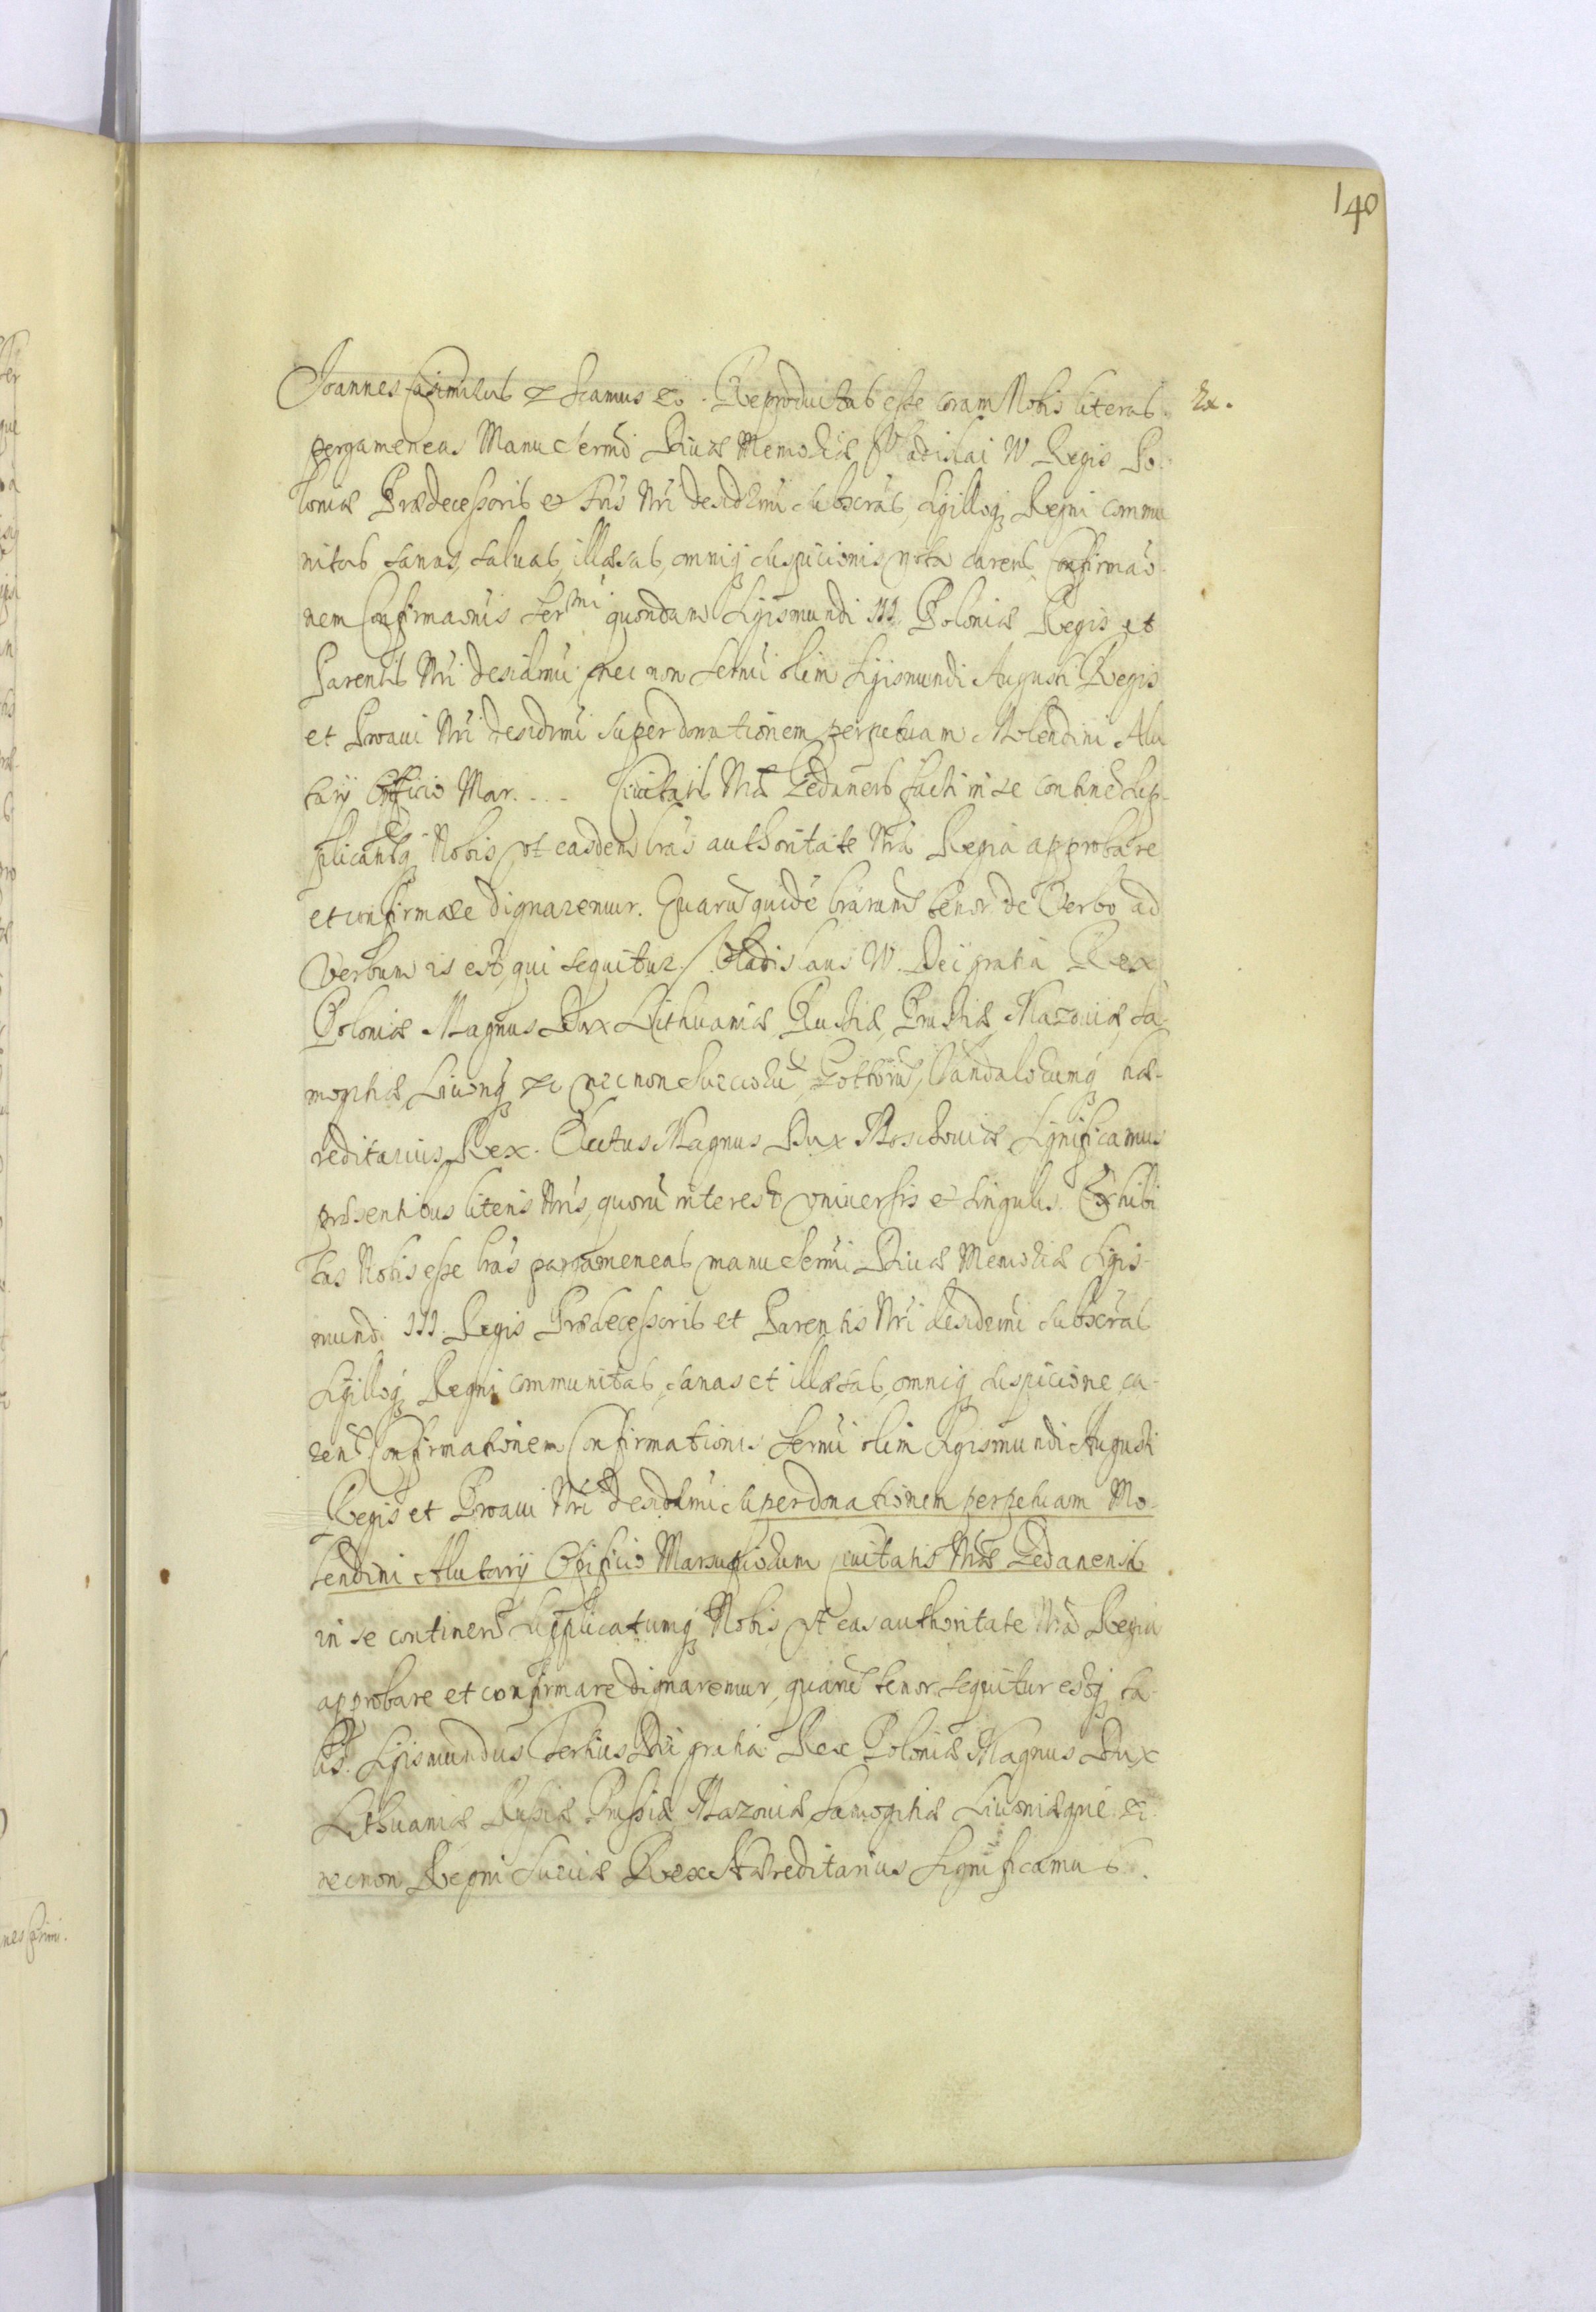 140
Joannes Casimirus &c Sicamus &c. Reproductas esse coram Nobis literas
pergameneas Manu Sermi Divæ Memoriæ Vladislai IV Regis Po-
loniæ Prædecessoris et Fris Nri desidrmi subscras, Sigilloq Regni commu
nitas sanas, salvas, illæsas, omniq suspicionis nota carens, Confirmao
nem Confirmaonis Sermi quondam Sigismundi III Poloniæ Regis et
Parentis Nri desidrmi, nec non Sermi olim Sigismundi Augusti Regis
et Proavi Nri desidrmi super donationem perpetuam Molendini Alu
tarij Opificio Mar.... Civitatis Nræ Gedanens facti in se contine Sup-
plicantq Nobis vt easdem lras authoritate Nra Regia approbare
et confirmare dignaremur. Quaru quide lrarum tenor de Verbo ad
Verbum is est, qui sequitur. Vladislaus IV. Dei gratia Rex
Poloniæ Magnus Dux Lithuaniæ, Russiæ, Prussiæ, Mazoviæ, Sa-
mogitiæ, Livonq &c necnon Suecoru, Gottoru, Vandalorumq hæ-
reditarius Rex. Electus Magnus Dux Moschoviæ Significamus
præsentibus literis Nris, quoru interest vniversis et singulis. Exhibi
tas Nobis esse lras pargameneas manu Sermi Divæ Memoriæ Sigis-
mundi III. Regis Prædecessoris et Parentis Nri desidrmi subscras
Sigilloq Regni communitas, sanas et illæsas, omniq suspicione ca-
rens Confirmationem Confirmationis Sermi olim Sigismundi Augusti
Regis et Proavi Nri desidrmi super donationem perpetuam Mo-
lendini Alutarij Opificio Marsupiorum civitatis Nræ Gedanensis
in se continens Supplicatumq Nobis, vt eas authoritate Nra Regia
approbare et confirmare dignaremur, quaru tenor sequitur estq ta-
lis. Sigismundus Tertius Dei gratia Rex Poloniæ Magnus Dux
Lithuaniæ Russiæ Prussiæ Mazoviæ Samogitiæ Livoniæque &c
necnon Regni Sueciæ Rex Hæreditarius Significamus.